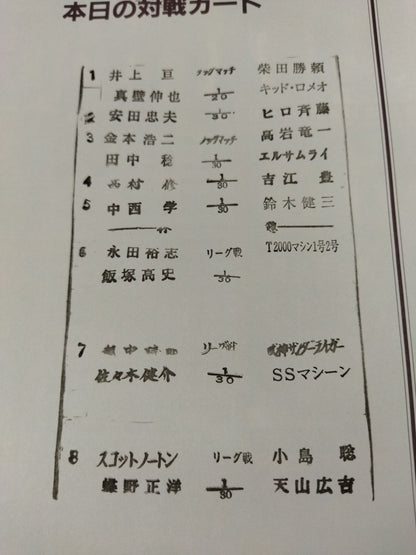 本日の対戦カード
1 井上 亘 タッグマッチ 柴田勝頼
真壁伸也 1/20 キッド・ロメオ
2 安田忠夫 1/30 ヒロ斉藤
3 金本浩二 タッグマッチ 高岩竜一
田中 稔 1/30 エルサムライ
4 西村 修 1/30 吉江 豊
5 中西 学 1/30 鈴木健三
6 永田裕志 リーグ戦 T2000マシン1号2号
飯塚高史 1/30
7 リーグ戦 獣神サンダーライガー
佐々木健介 1/30 SSマシーン
8 スコットノートン リーグ戦 小島 聡
蝶野正洋 1/30 天山広吉